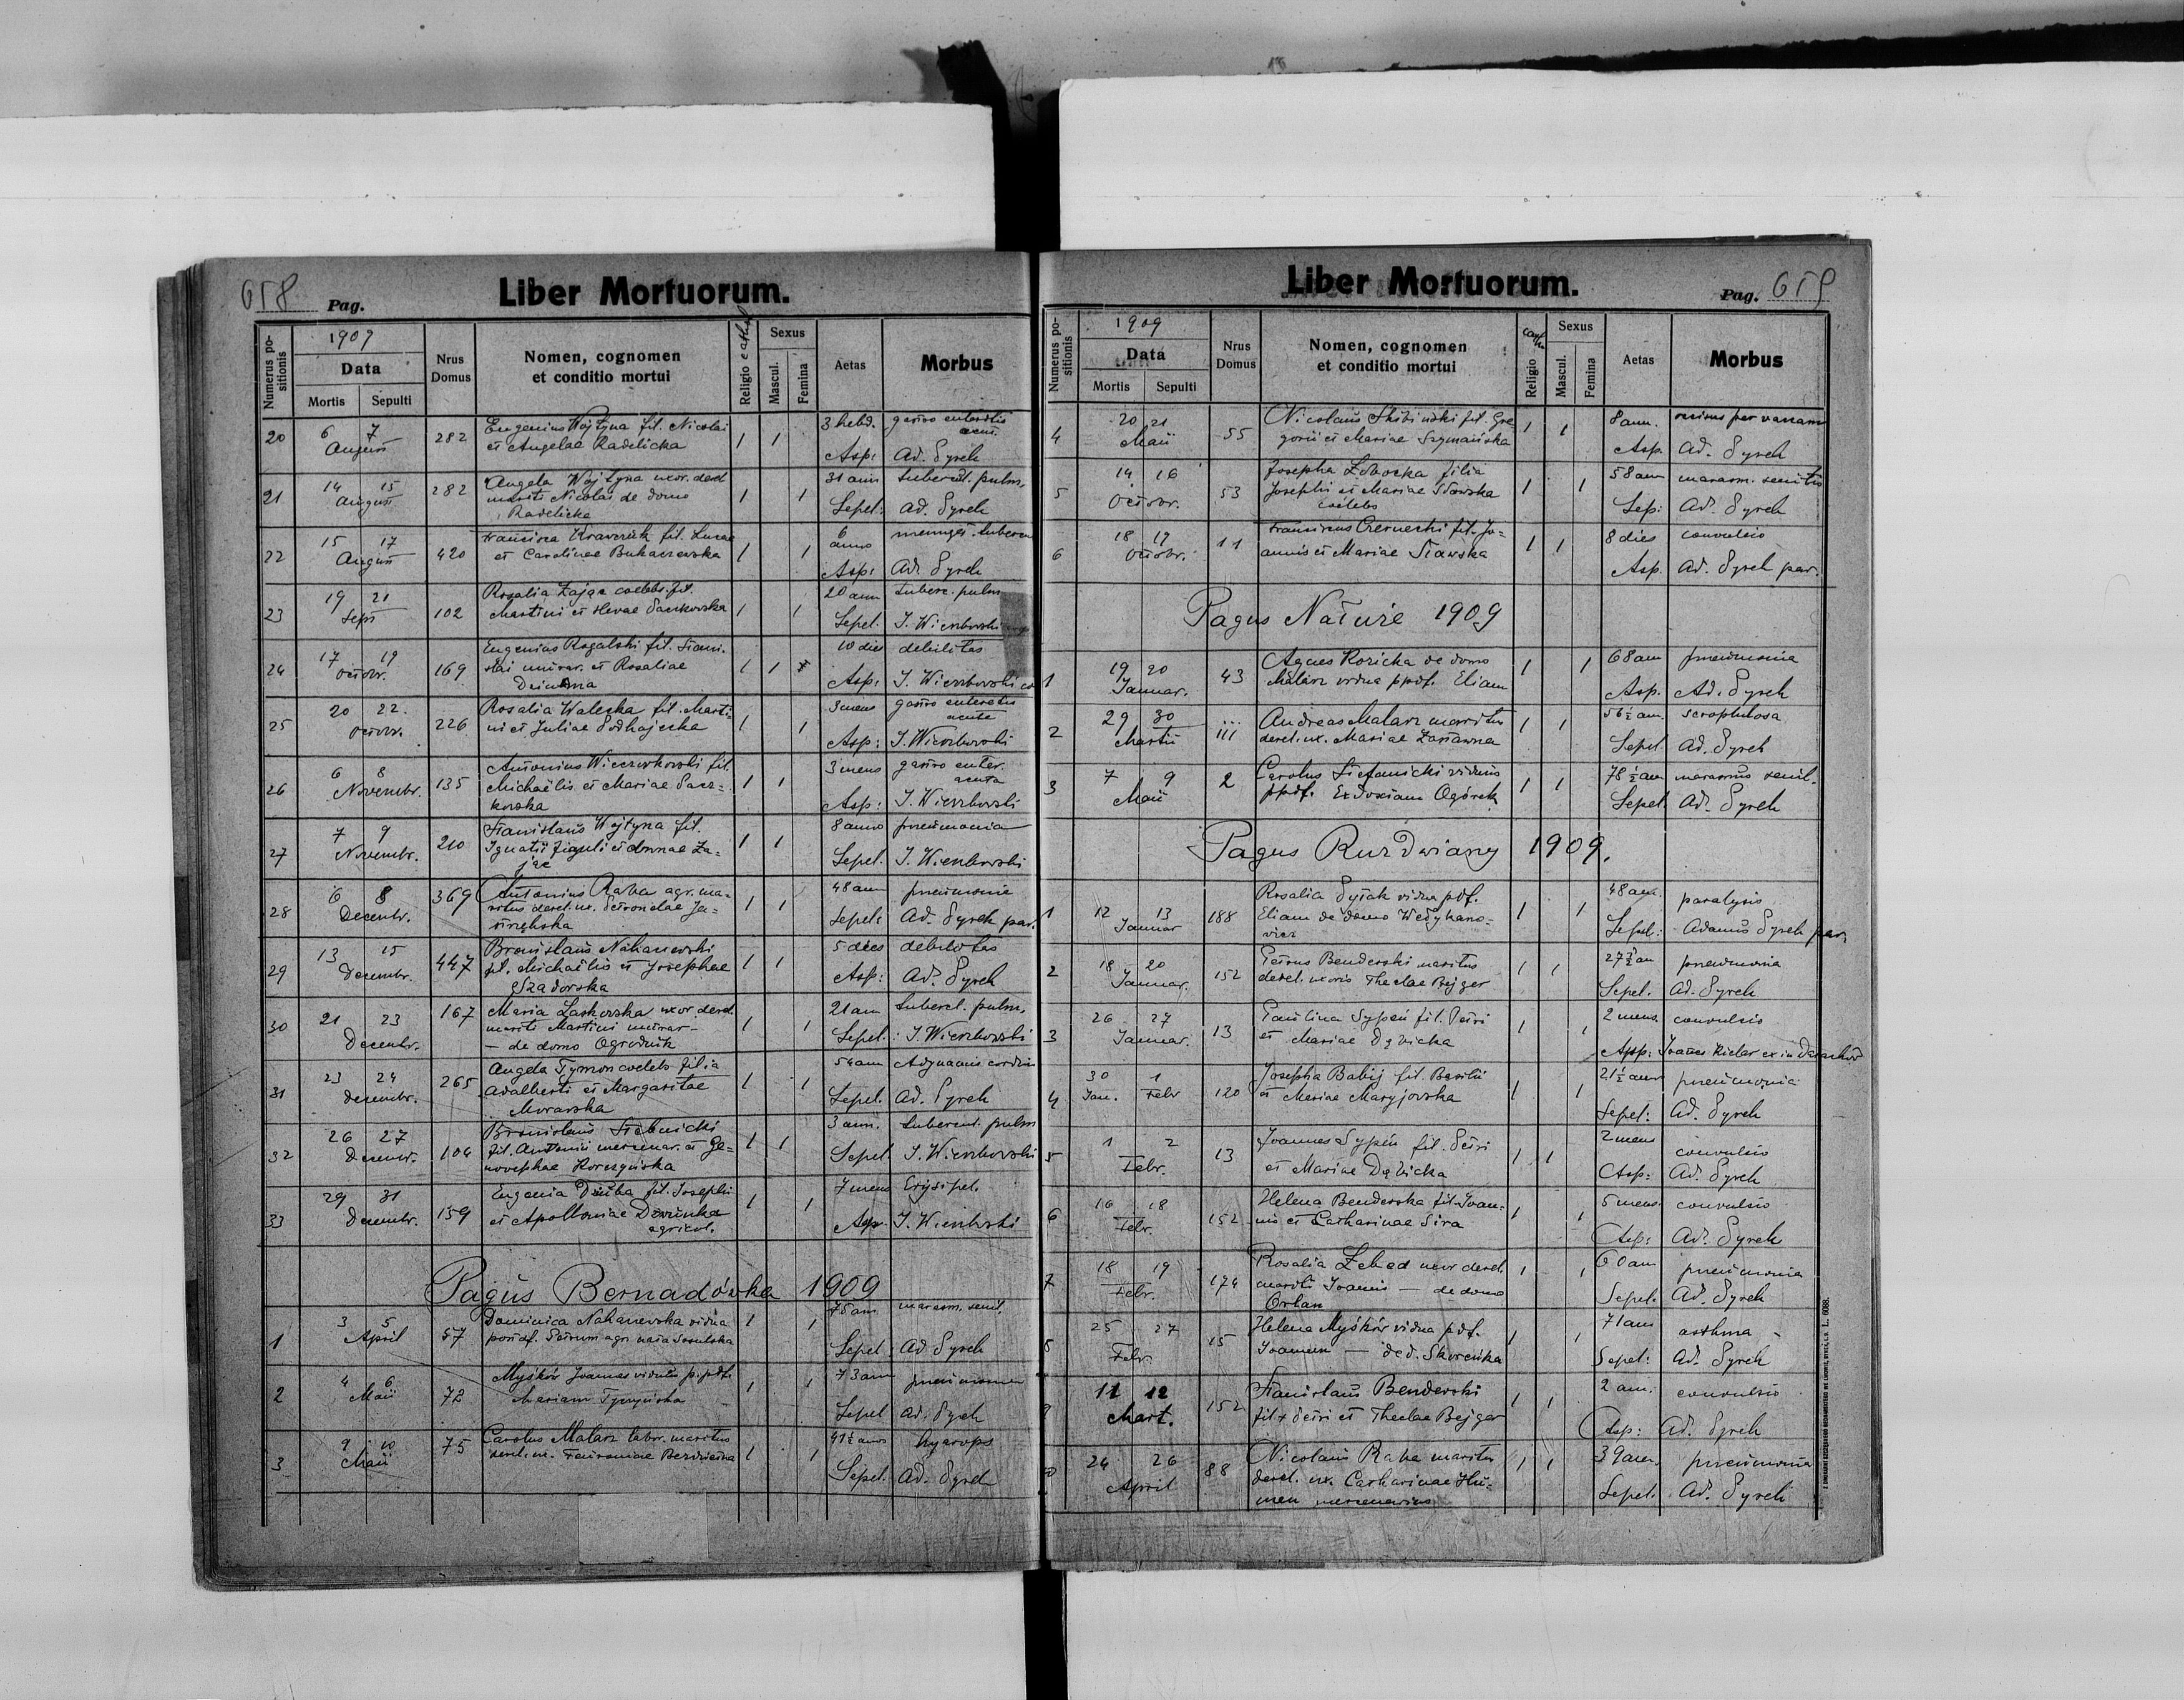 658 Pag. Liber Mortuorum.
Numerus positionis
1909
Data
Mortis Sepulti
Nrus Domus
Nomen, cognomen
et conditio mortui
Religio cathol
Sexus
Mascul. Femina
Aetas
Morbus
20 6 7 August 282 Eugenius Wojtyna fil. Nicolai 1 1 3 hebd. gastro enteritis
et Angelae Radelicka Asp: Ad. Dyrek
21 14 15 August 282 Angela Wojtyna uxor. derel 1 1 31 ann tubercul. pulm.
mariti Nicolai de domo Sepel: Ad. Dyrek
Radelicka
22 15 17 August 420 Francisca Krawczuk fil. Lucae 1 1 6 anno
et Carolinae Bukaczewska Asp: Ad. Dyrek
23 19 21 Sept 102 Rosalia Zając coelebs. fil. 1 1 20 ann tuberc. pulm
Martini et Sepel: J. Wierzbowski
24 17 19 Octobr. 169 Eugenius Rogalski fil. Stani- 1 1 10 dies debilitas
slai murar. et Rosaliae Asp: J. Wierzbowski
25 20 22 Octobr. 226 Rosalia Waleska fil. Marti- 1 1 3 mens gastro enteritis
ni et Juliae Podhajecka acuta
Asp: J. Wierzbowski
26 6 8 Novembr. 135 Antonius fil. 1 1 3 mens gastro enter.
Michaëlis et Mariae Pacz= acuta
kowska Asp: J. Wierzbowski
27 7 9 Novembr. 210 Stanislaus Wojtyna fil. 1 1 8 anno pneumonia
Ignatii figuli et Annae Za= Sepel. J. Wierzbowski
jąc
28 6 8 Decembr. 369 Antonius Raba agr. ma- 1 1 48 ann pneumonia
ritus derel. ux. Petronelae Ja= Sepel: Ad. Dyrek par.
29 13 15 Decembr. 447 Bronislaus Nahanowski 1 1 5 dies debilitas
fil. Michaëlis et Josephae Asp: Ad. Dyrek
30 21 23 Decembr. 167 Maria Laskowska uxor. derel. 1 1 21 ann tubercl. pulm.
mariti Martini murar- Sepel: J. Wierzbowski
— de domo Ogrodnik
31 23 24 Decembr. 265 Angela Tymon coelebs filia 1 1 54 ann Adynamis cordis
Adalberti et Margaritae Sepel. Ad. Dyrek
Morawska
32 26 27 Decembr. 104 Bronislaus 1 1 3 ann. tubercul. pulm
fil. Antonii mercenar. et Ge= Sepel J. Wierzbowski
novephae
33 29 31 Decembr. 159 Eugenia Dziuba fil. Josephi 1 1 7 mens Erysipel.
et Apolloniae Asp. J. Wierzbowski
agricol.
Pagus Bernadówka 1909
1 3 5 April 57 Dominica Nahanowska vidua 1 1 75 ann marasm. senil.
Petrum agr. nata Sosulska Sepel Ad Dyrek
2 4 6 Maii 72 Myśków Joannes viduus p. pdf. 1 1 73 ann pneumonia
Mariam Sepel Ad. Dyrek
3 9 10 Maii 75 Carolus Malarz labor. maritus 1 1 41½ annos hydrops
derel. ux. Sepel. Ad. Dyrek
Liber Mortuorum. Pag. 659
Numerus positionis
1909
Data
Mortis Sepulti
Nrus Domus
Nomen, cognomen
et conditio mortui
Religio cath.
Sexus
Mascul. Femina
Aetas
Morbus
4 20 21 Maii 55 Nicolaus Skibinski fil. Gre 1 1 8 ann. occisus per vaccam
gorii et Mariae Szymańska Asp. Ad. Dyrek
5 14 16 Octobr. 53 Josepha filia 1 1 58 ann marasm. senilis
Josephi et Mariae Sep: Ad. Dyrek
coelebs
6 18 19 Octobr. 11 Franciscus Czernecki fil. Jo- 1 1 8 dies convulsio
annis et Mariae Asp. Ad. Dyrek par.
Pagus Naturie 1909
1 19 20 Januar. 43 Agnes Koricka de domo 1 1 68 ann pneumonia
Malarz vidua ppdf. Eliam Asp. Ad. Dyrek
2 29 30 Martii 111 Andreas Malarz maritus 1 1 56½ am. scrophulosa
derel. ux. Mariae Sepel Ad. Dyrek
3 7 9 Maii 2 Carolus Stefanicki viduus 1 1 78½ ann marasmus senil.
ppdf. Eudoxiam Ogórek Sepel Ad. Dyrek
Pagus Ruzdwiany 1909.
1 12 13 Januar 188 Rosalia Dytiak vidua pdf. 1 1 48 ann. paralysis
Eliam de domo Sepel: Adamus Dyrek par.
2 18 20 Januar. 152 Petrus Benderski maritus 1 1 pneumonia
derel. uxoris Theclae Bejger Sepel. Ad. Dyrek
3 26 27 Januar. 13 Paulina Sypeń fil. Petri 1 1 2 mens. convulsio
et Mariae Dębicka Asp: Joanes
4 30 1 Jan. Febr 120 Josepha Babij fil. Basilii 1 1 21½ ann pneumonia
et Mariae Maryjowska Sepel: Ad. Dyrek
5 1 2 Febr. 13 Joannes Sypeń fil. Petri 1 1 2 mens convulsio
et Mariae Dębicka Asp: Ad. Dyrek
6 16 18 Febr. 152 Helena Benderska fil. Joan- 1 1 5 mens. convulsio
nis et Catharinae Sira Asp: Ad. Dyrek
7 18 19 Febr. 174 Rosalia uxor derel. 1 1 60 ann pneumonia
mariti Joannis — de domo Sepel. Ad. Dyrek
Orlan
8 25 27 Febr. 15 Helena Myśków vidua pdf. 1 1 71 ann asthma
Joannem — de d. Skoreńka Sepel: Ad. Dyrek
9 11 12 Mart. 152 Stanislaus Benderski 1 1 2 am. convulsio
fil + Petri et Theclae Bejger Asp: Ad. Dyrek
24 26 April 88 Nicolaus Raba maritus 1 1 39 ann. pneumonia
derel. ux. Catharinae Hu= Sepel. Ad. Dyrek
men mercenarius